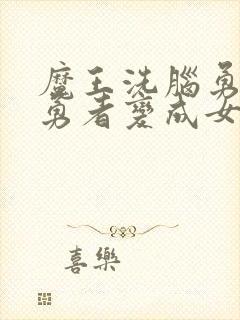 魔王洗腦勇
勇者變成女
喜樂